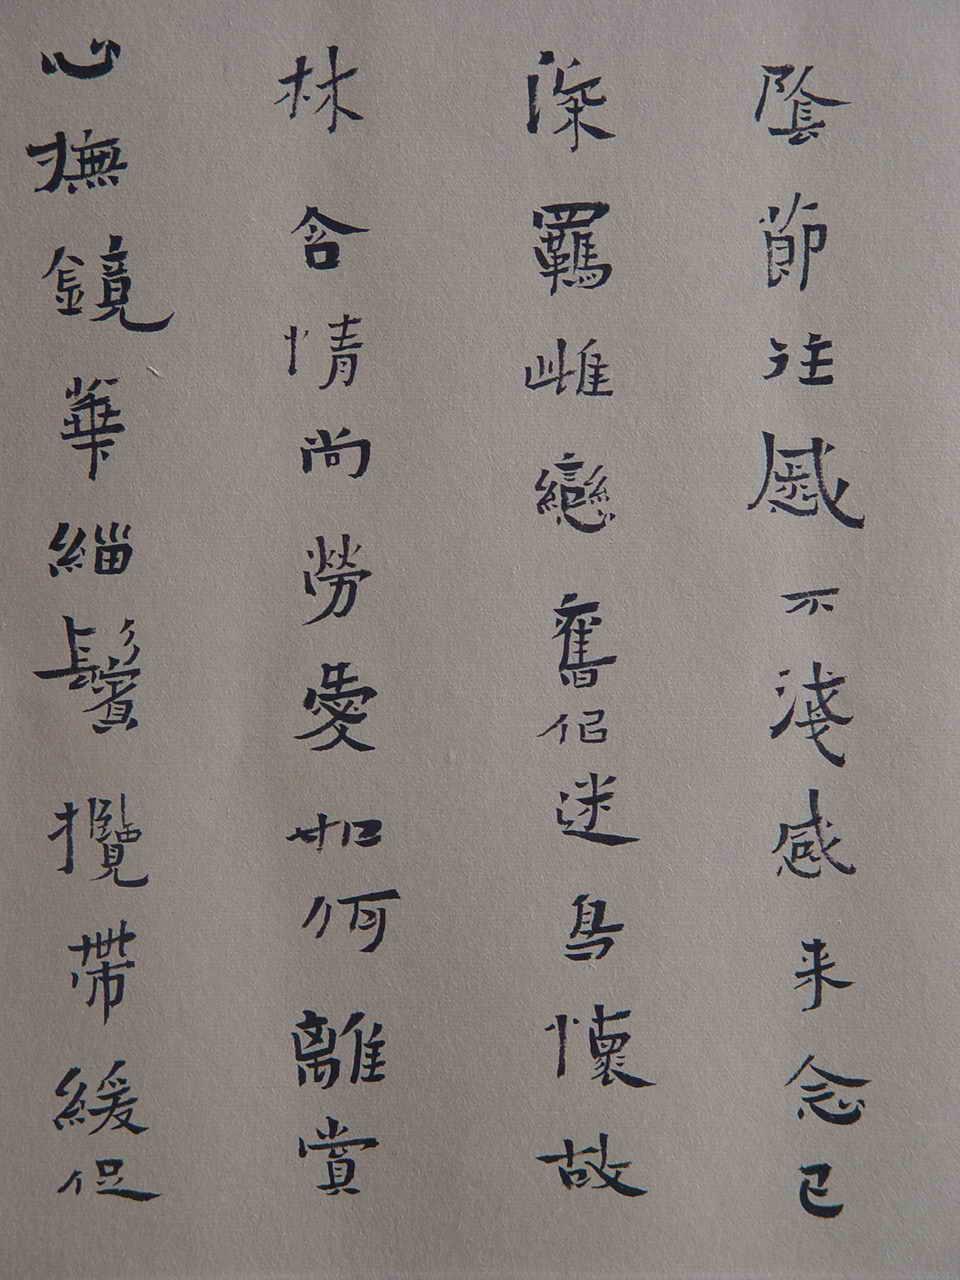 陰節往慼不淺感来念已
深羈雌戀舊侶迷鳥懷故
林含情尚勞愛如何離賞
心撫鏡華緇鬢攬帶緩促